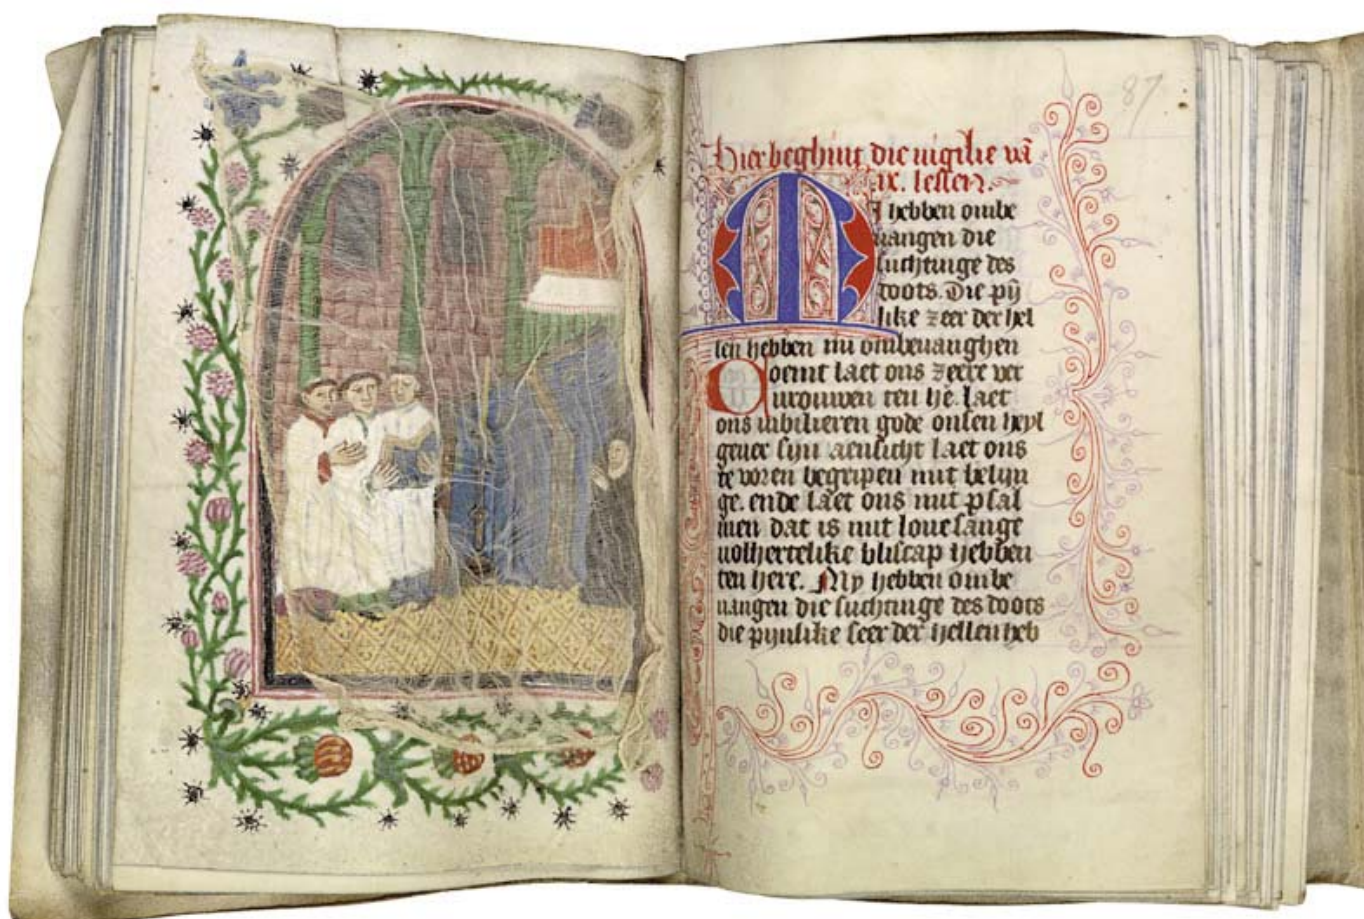 87
Hier beghint die vigilie vā
ix. lessen.
MI hebben ombe
uangen die
suchtinge des
doots. Die pij
like zeer der hel
len hebben mi ombeuanghen
Coemt laet ons zeere ver
urouwen ten hē. laet
ons iubilieren gode onsen heyl
geuer sijn aensicht laet ons
te voren begripen mit belijn
ge. ende laet ons mit psal
men dat is mit loue sange
volhertelike bliscap hebben
ten here. My hebben ombe
uangen die suchtinge des doots
die pijnlike seer der hellen heb